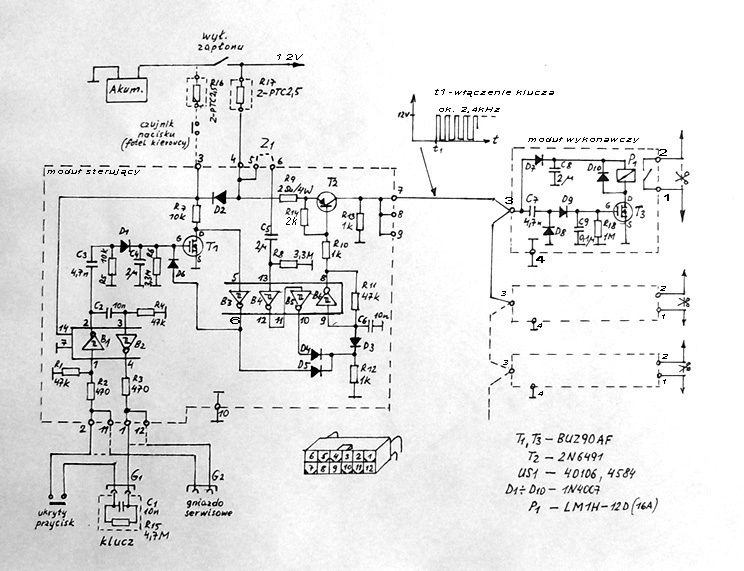 wył.
zapłonu
12V
Akum.
R16
2-PTC2,5
R17
2-PTC2,5
czujnik
nacisku
(fotel kierowcy)
Z1
3
4
5
6
moduł sterujący
R7
10k
D2
R9
2Ω/4W
T2
7
8
9
R14
2k
R13
1k
R10
1k
D1
C3
4,7n
R5
10k
C4
2µ
R6
3,3M
G
D
S
T1
D6
C5
2µ
R8
3,3M
R11
47k
5
13
8
B3
B4
B5
B6
6
12
11
10
9
C6
10n
D3
D4
D5
R12
1k
C2
10n
R4
47k
14
2
3
7
B1
B2
1
4
R1
47k
R2
470
R3
470
10
2
11
1
12
G1
G2
ukryty
przycisk
C1
10n
R15
4,7M
klucz
gniazdo
serwisowe
6 5 4 3 2 1
7 8 9 10 11 12
t1-włączenie klucza
ok. 2,4kHz
12V
t1
t
moduł wykonawczy
D7
C8
2µ
D10
P1
2
1
3
C7
4,7n
D9
D8
C9
0,1µ
R18
1M
G
D
S
T3
4
3
2
1
4
3
2
1
4
T1, T3 - BUZ90AF
T2 - 2N6491
US1 - 40106, 4584
D1÷D10 - 1N4007
P1 - LM1H-12D (16A)